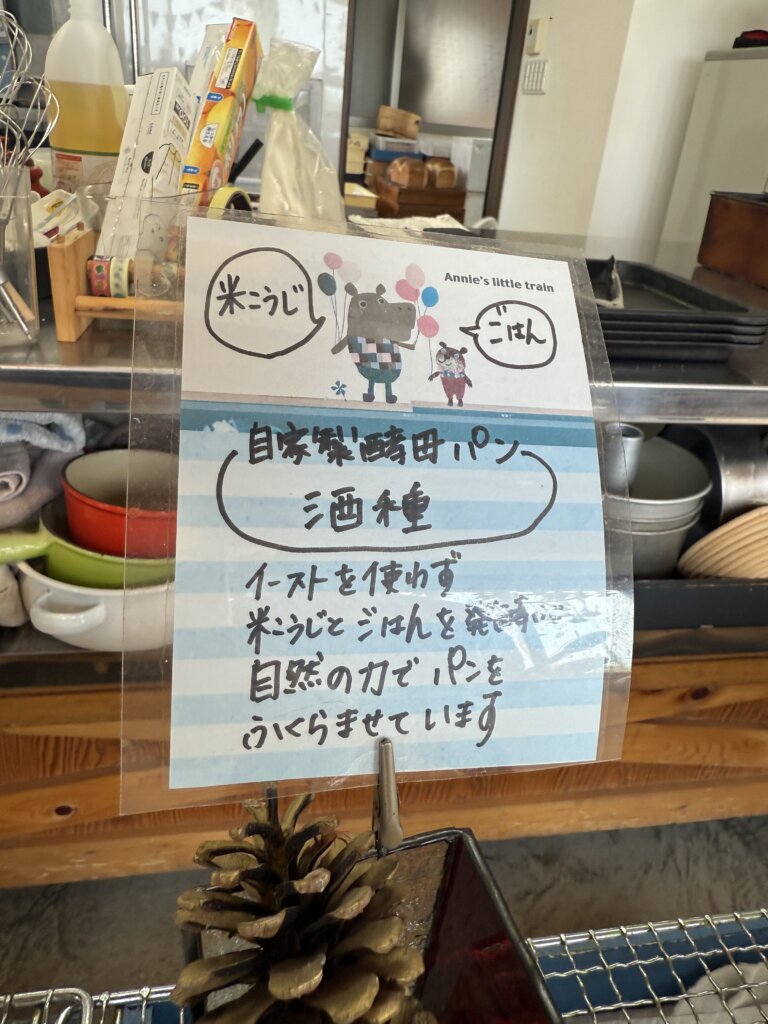 Annie's little train
米こうじ
ごはん
自家製酵母パン
酒種
イーストを使わず
米こうじとごはんを発
自然の力でパンを
ふくらませています